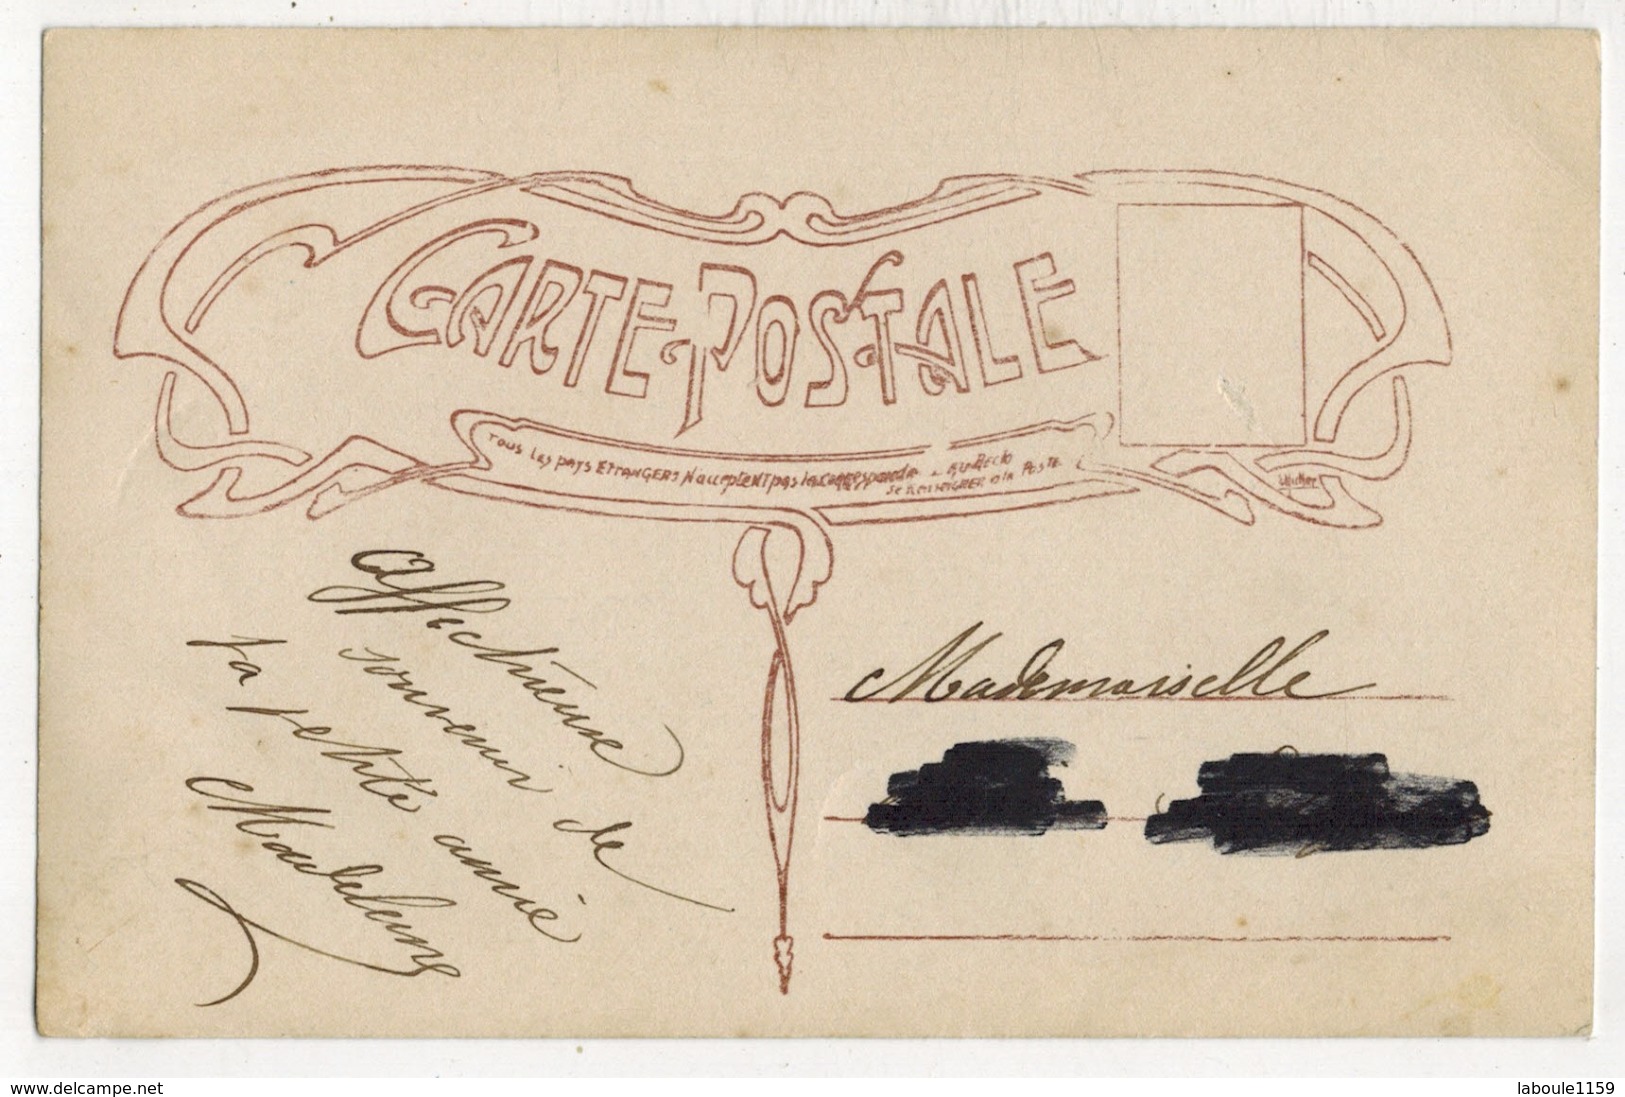 CARTE-POSTALE
Tous Les pays Etrangers N'acceptent pas la correspondance au Recto
se Renseigner à la Poste
Affectueux
souvenir de
ta petite amie
Madeleine
Mademoiselle
www.delcampe.net
laboule1159